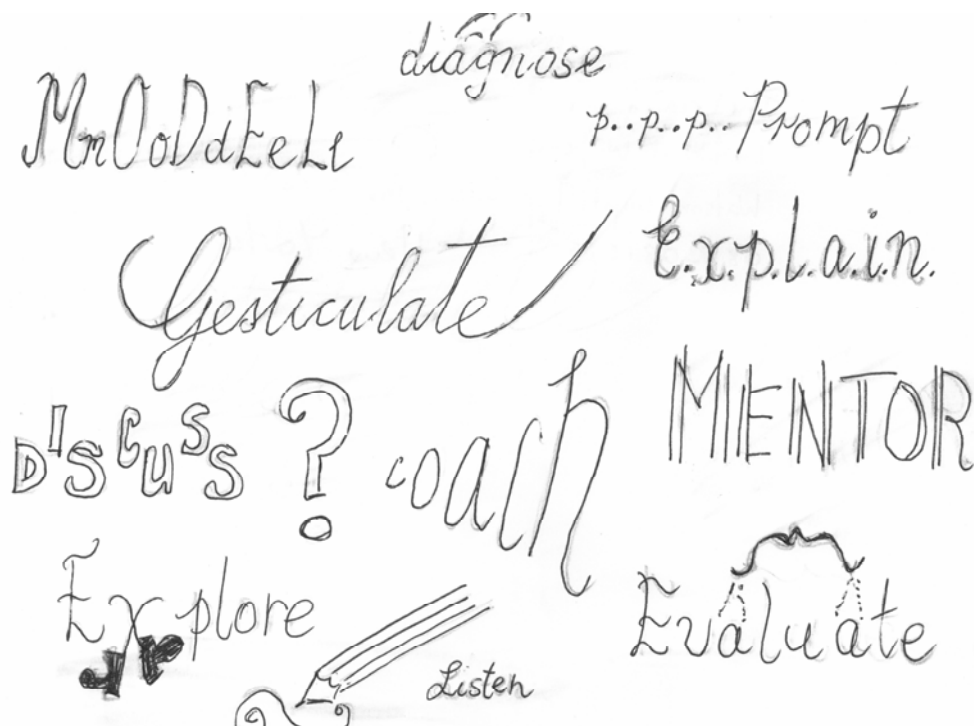 diagnose
MmOoDdEeLl
p..p..p..Prompt
Gesticulate
E.x.p.l.a.i.n.
DISCUSS ?
coach
MENTOR
Explore
Evaluate
Listen